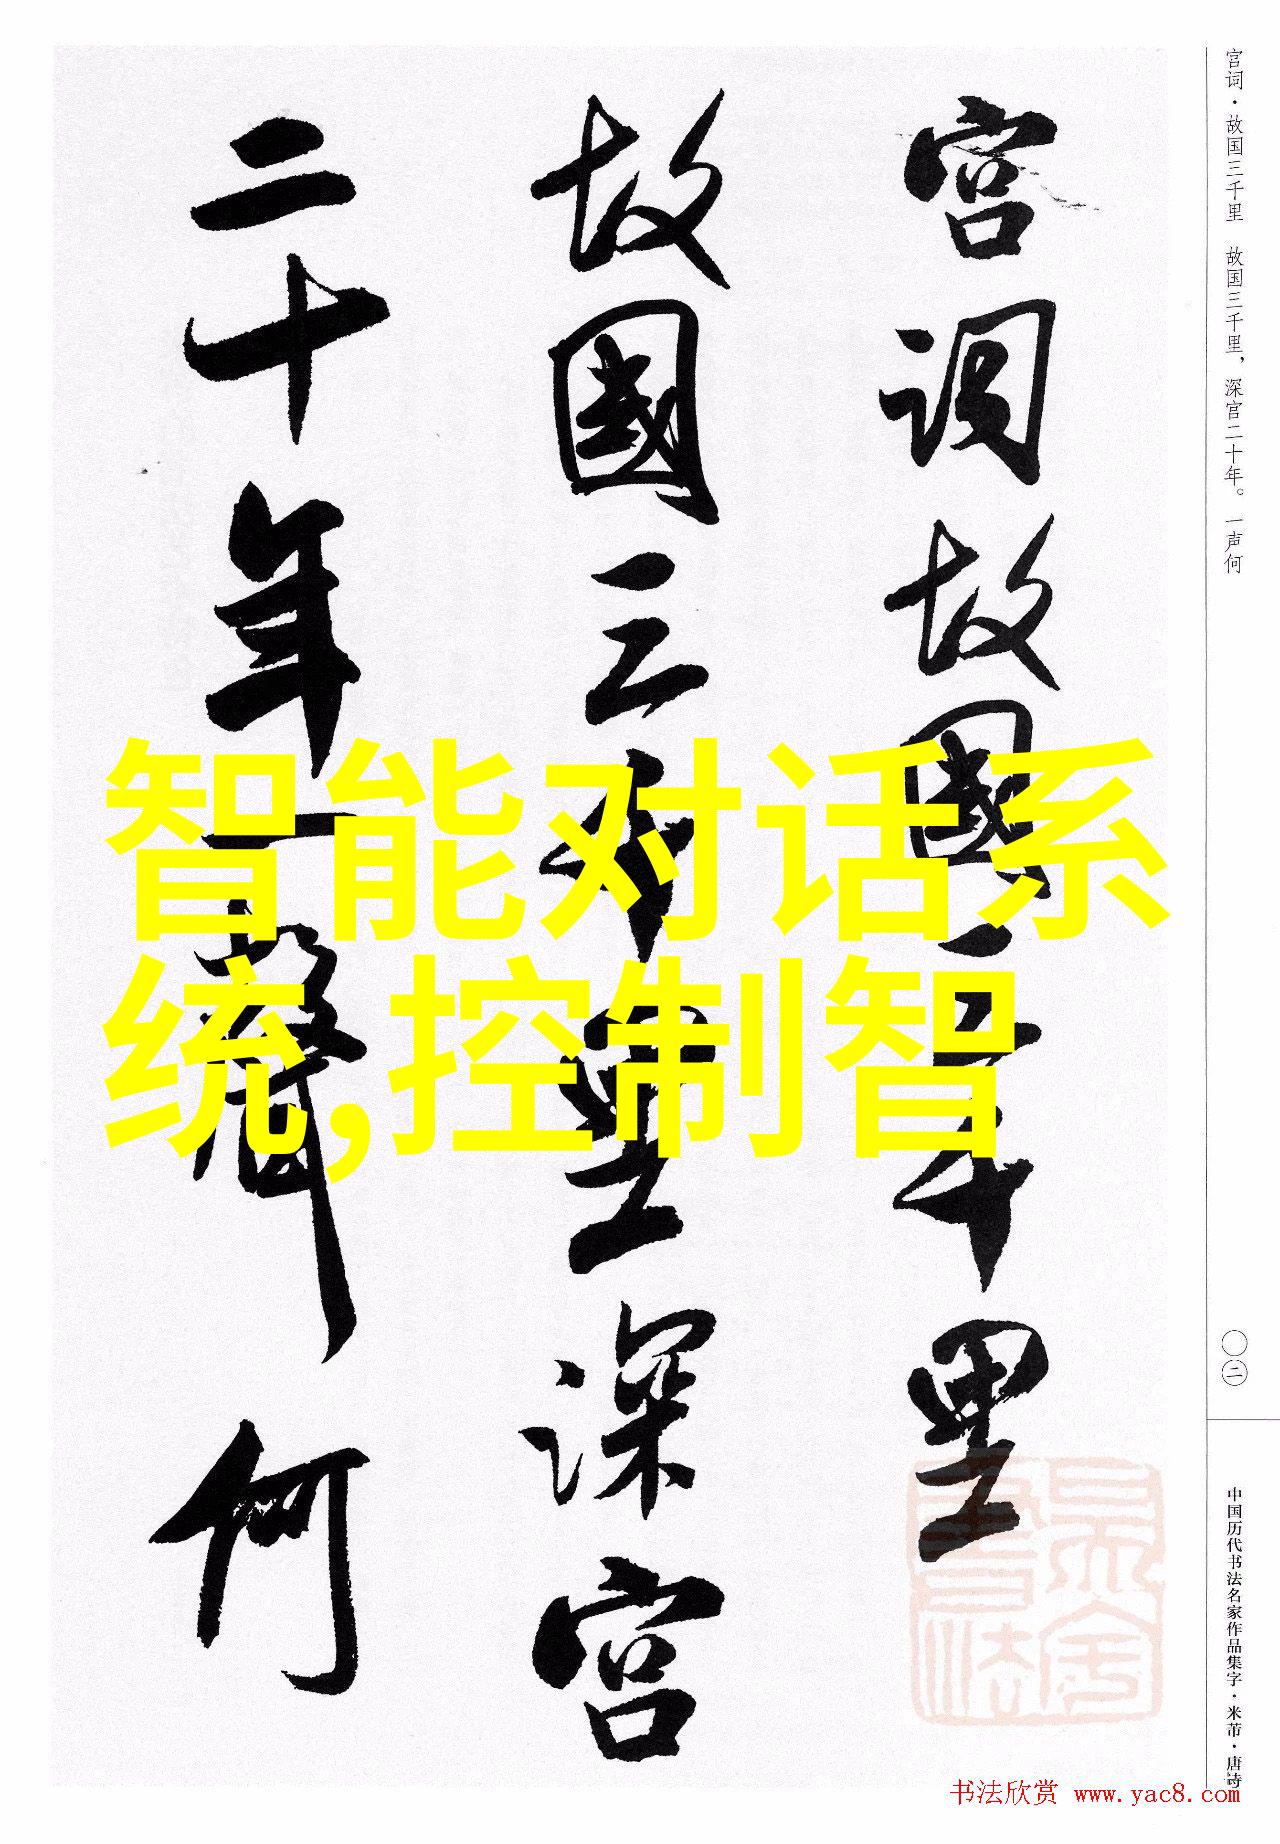 宫词·故国三千里　故国三千里，深宫二十年。一声何
宫词故國三千里
故國三千里深宫
二十年一聲何
智能对话系
统,控制智
〇二
中国历代书法名家作品集字·米芾·唐诗
书法欣赏 www.yac8.com